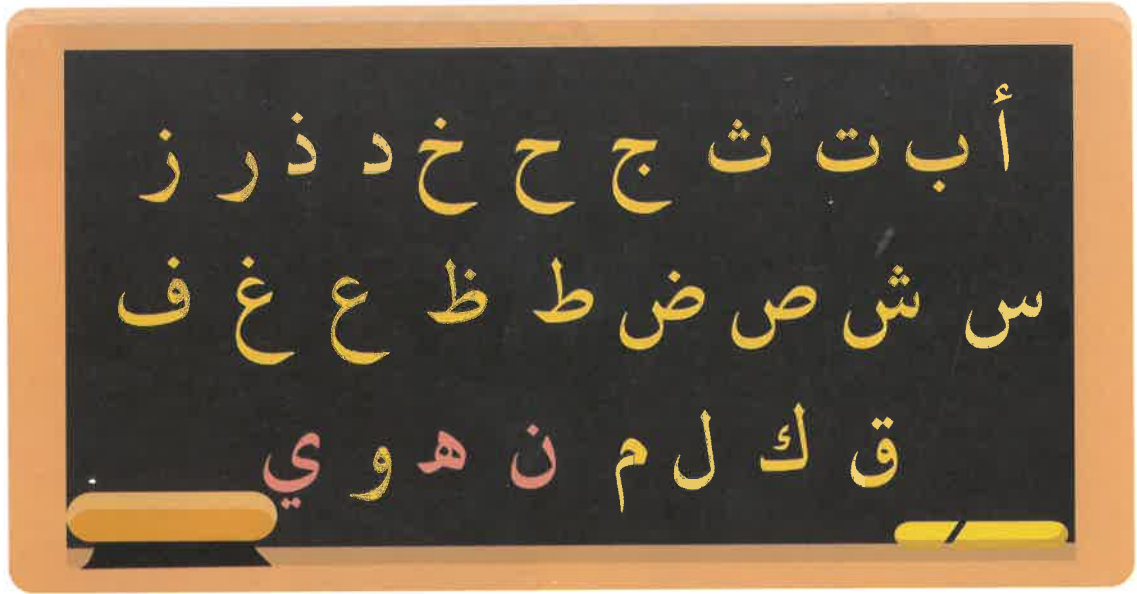 أ ب ت ث ج ح خ د ذ ر ز
س ش ص ض ط ظ ع غ ف
ق ك ل م ن ه و ي